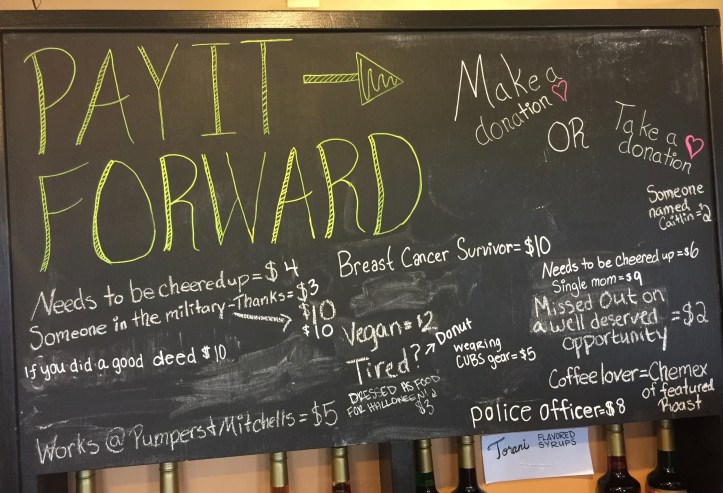 PAY IT →
FORWARD
Make a
donation ♡
OR
Take a
donation ♡
Someone
named
Caitlin=$2
Needs to be cheered up=$4
Someone in the military-Thanks=$3
$10
$10
If you did a good deed $10
Works @ Pumpers & Mitchells=$5
Breast Cancer Survivor=$10
Vegan=$2
Tired? ↗ Donut
DRESSED AS FOOD
FOR HALLOWEEN
$3
wearing
CUBS gear=$5
Needs to be cheered up=$6
Single mom=$9
Missed Out on
a well deserved =$2
opportunity
Coffee lover=Chemex
of featured
Roast
police officer=$8
Torani FLAVORED
SYRUPS